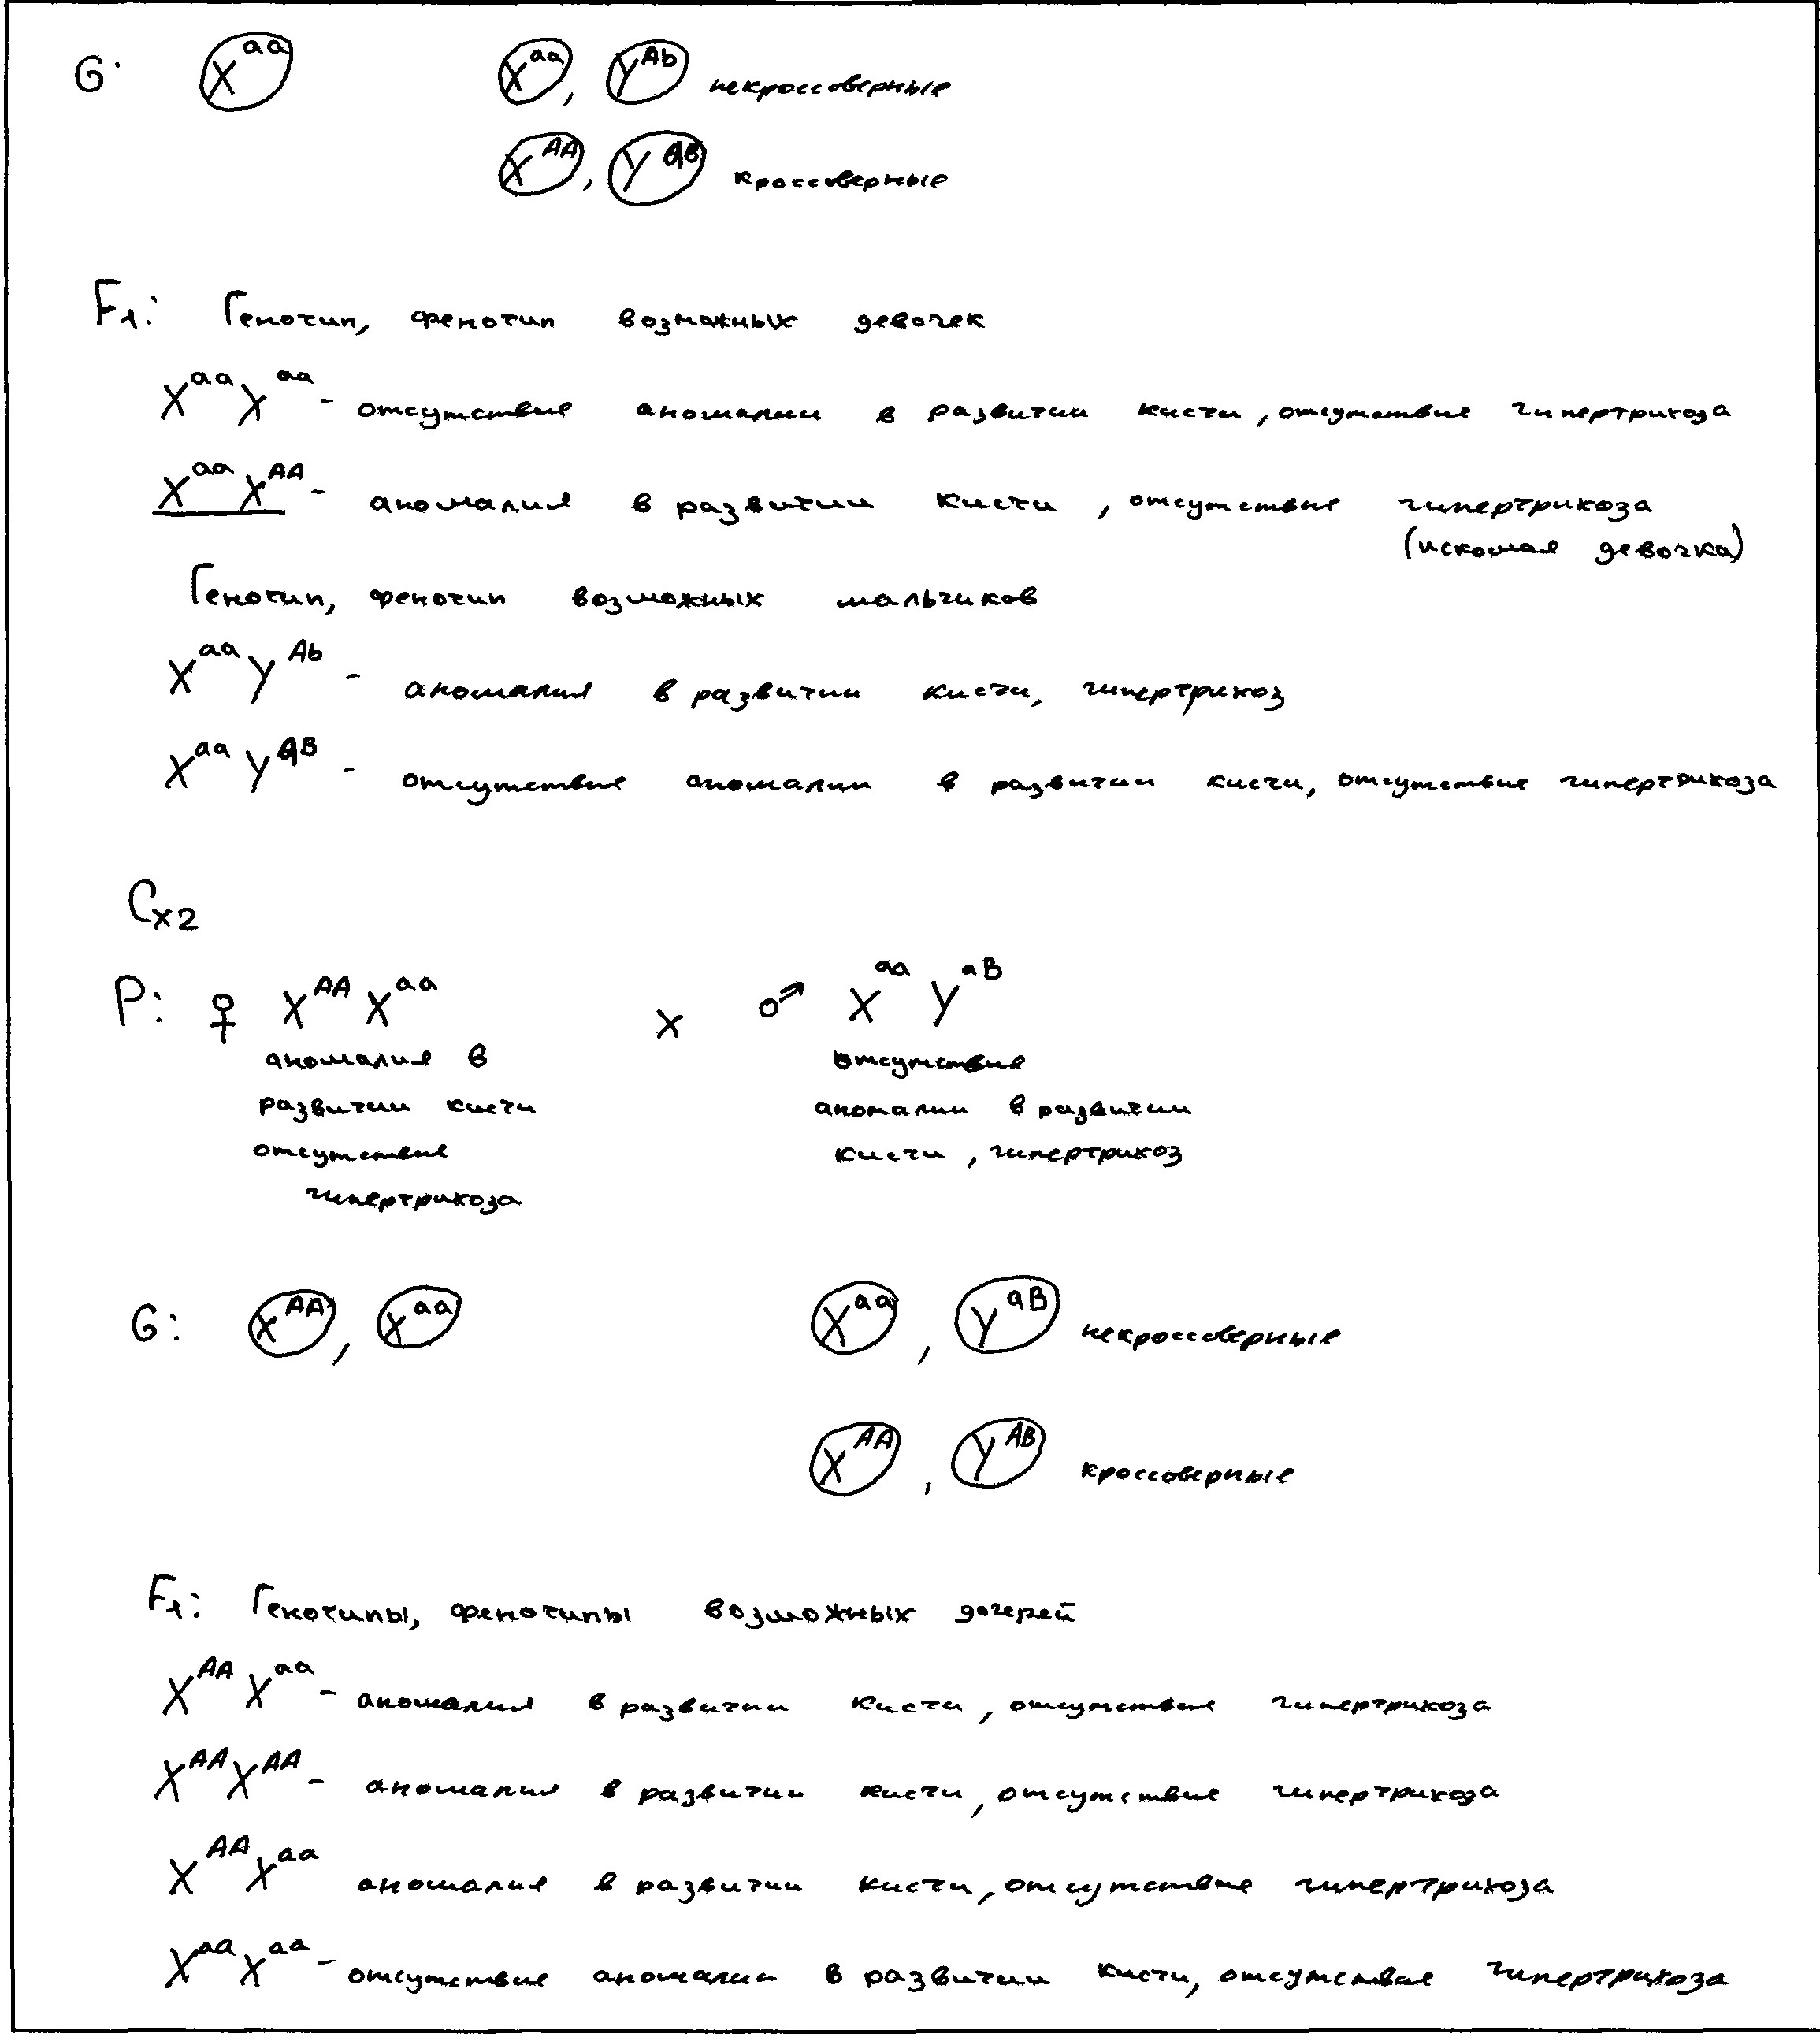 G: X^aa X^aa, Y^Ab некроссоверные
X^AA, Y^aB кроссоверные
F1: Генотип, фенотип возможных девочек
X^aa X^aa - отсутствие аномалии в развитии кисти, отсутствие гипертрихоза
X^aa X^AA - аномалия в развитии кисти, отсутствие гипертрихоза
(искомая девочка)
Генотип, фенотип возможных мальчиков
X^aa Y^Ab - аномалия в развитии кисти, гипертрихоз
X^aa Y^aB - отсутствие аномалии в развитии кисти, отсутствие гипертрихоза
Сх2
P: ♀ X^AA X^aa x ♂ X^aa Y^aB
аномалия в отсутствие
развитии кисти аномалии в развитии
отсутствие кисти, гипертрихоз
гипертрихоза
G: X^AA, X^aa X^aa, Y^aB некроссоверные
X^AA, Y^AB кроссоверные
F1: Генотипы, фенотипы возможных дочерей
X^AA X^aa - аномалия в развитии кисти, отсутствие гипертрихоза
X^AA X^AA - аномалия в развитии кисти, отсутствие гипертрихоза
X^AA X^aa аномалия в развитии кисти, отсутствие гипертрихоза
X^aa X^aa - отсутствие аномалии в развитии кисти, отсутствие гипертрихоза